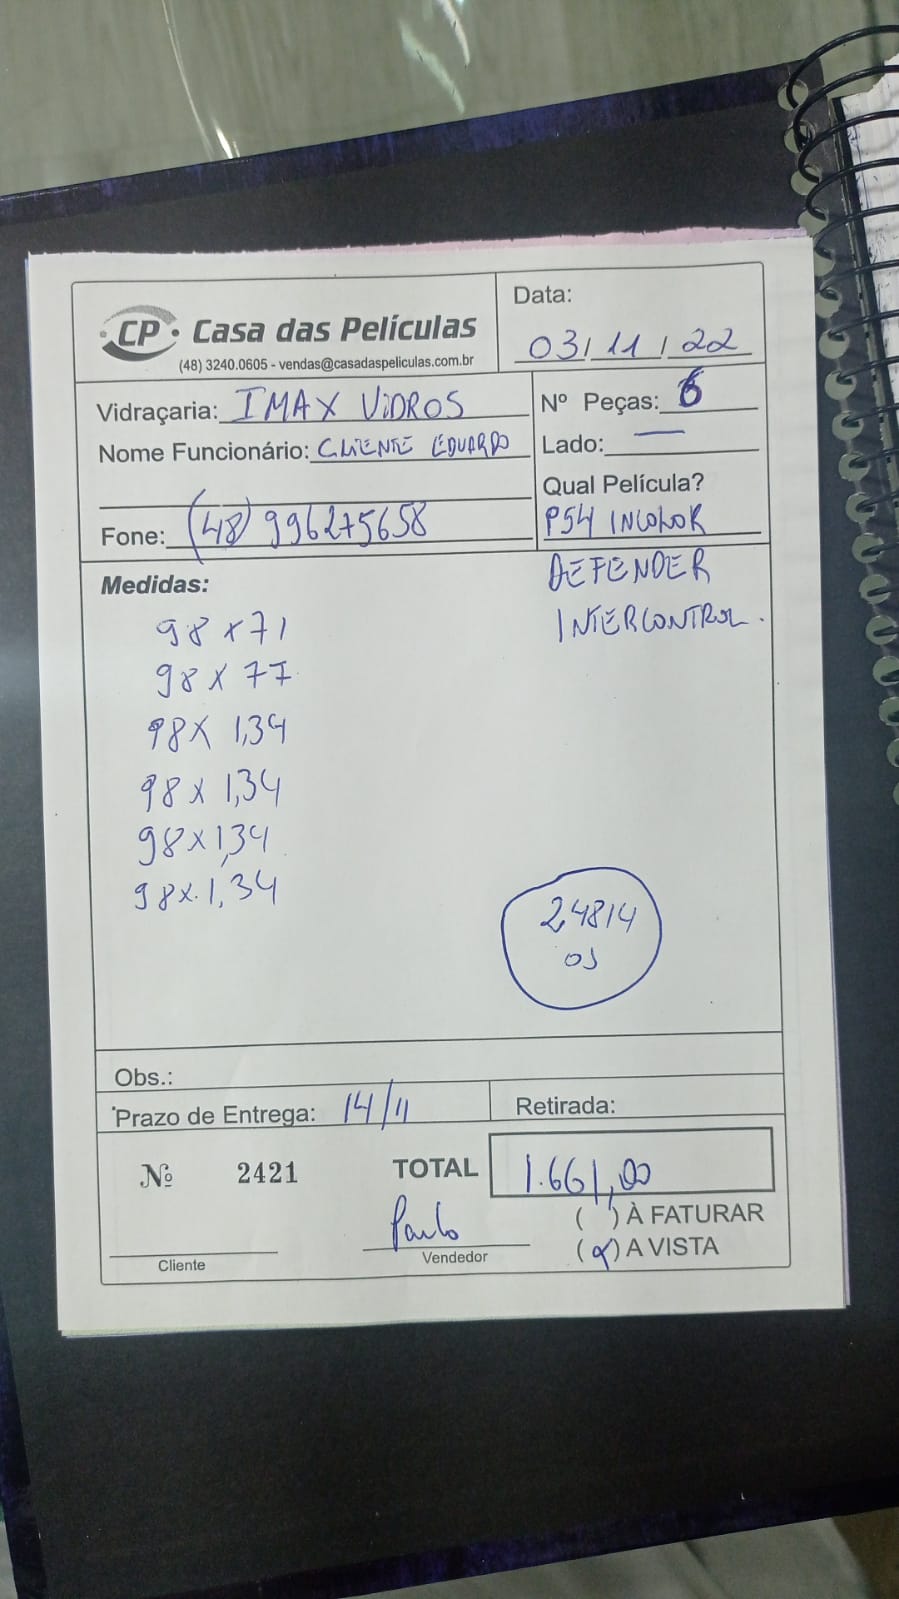 CP Casa das Películas
(48) 3240.0605 - vendas@casadaspeliculas.com.br
Data:
03/11/22
Vidraçaria: IMAX VIDROS
Nº Peças: 6
Nome Funcionário: CLIENTE EDUARDO
Lado: —
Qual Película?
Fone: (48) 996275658
PS4 INCOLOR
DEFENDER
INTERCONTROL.
Medidas:
98 x 71
98 x 77
98 x 1,34
98 x 1,34
98 x 1,34
98 x 1,34
24814
OS
Obs.:
Prazo de Entrega: 14/11
Retirada:
Nº 2421
TOTAL 1.661,00
( ) À FATURAR
(x) A VISTA
Paulo
Cliente
Vendedor